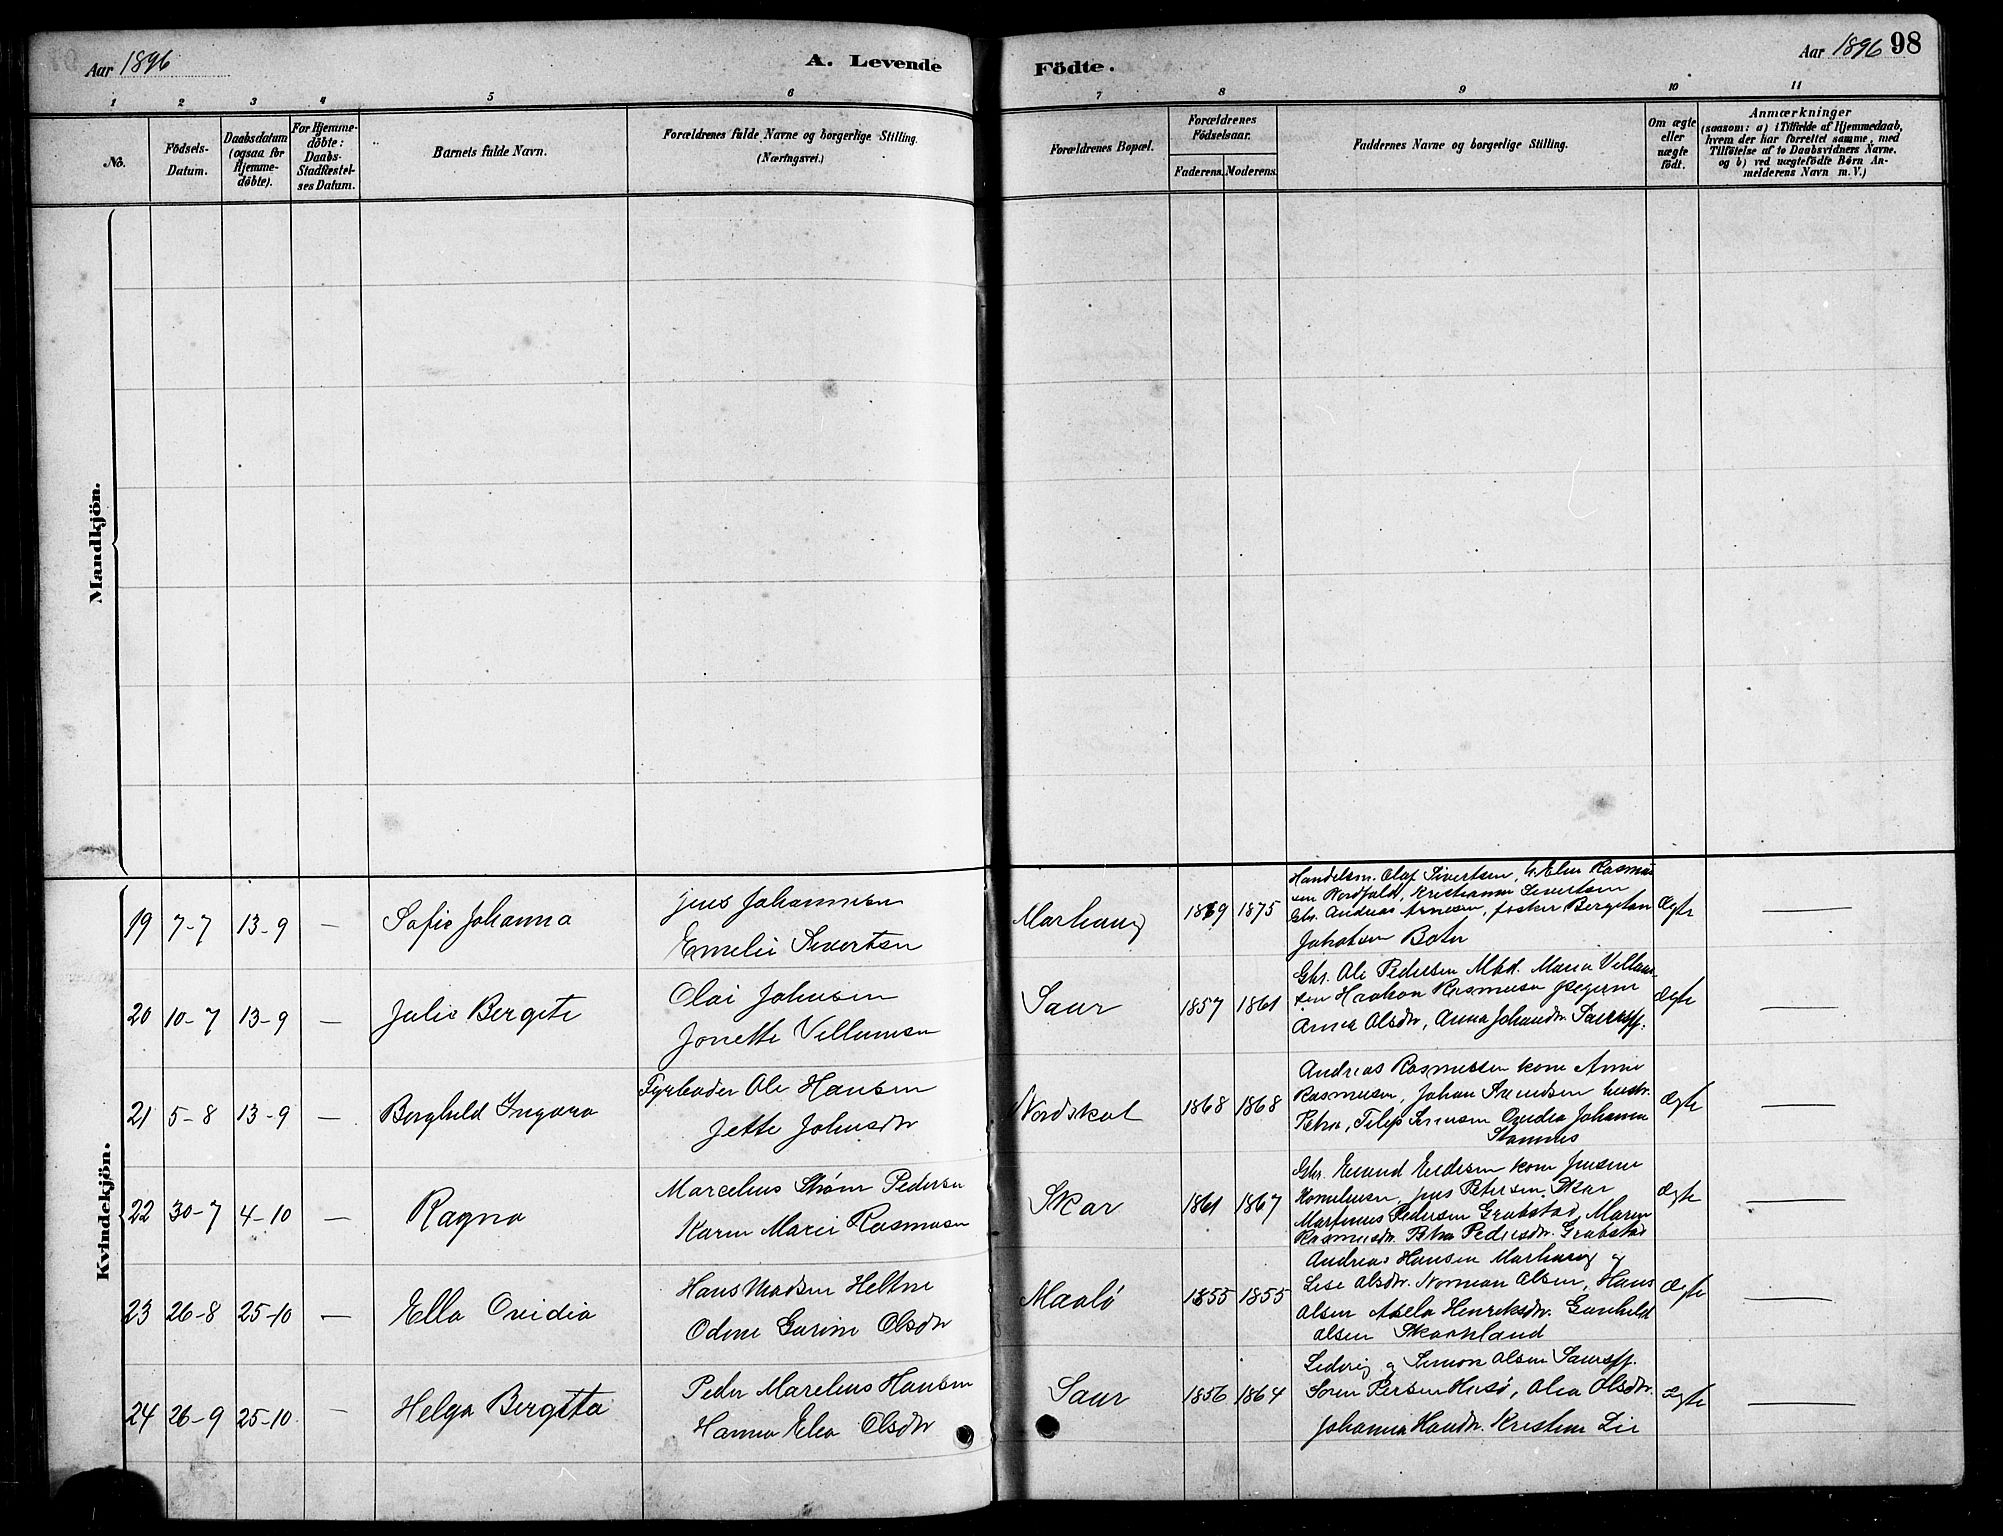 Aar 1896
A. Levende
Födte.
Aar 1896 98
1 2 3 4 5 6 7 8 9 10 11
No.
Födsels-
Datum.
Daabsdatum
(ogsaa for
Hjemme-
döbte).
For Hjemme-
döbte:
Daabs-
Stadfæstel-
ses Datum.
Barnets fulde Navn.
Forældrenes fulde Navne og borgerlige Stilling.
(Næringsvei.)
Forældrenes Bopæl.
Forældrenes
Födselsaar.
Faderens. Moderens.
Faddernes Navne og borgerlige Stilling.
Om ægte
eller
uægte
födt.
Anmærkninger
(saasom: a) i Tilfælde af Hjemmedaab,
hvem der har forrettet samme, med
Tilföielse af to Daabsvidners Navne,
og b) ved uægtefödte Börn An-
melderens Navn m. V.)
Mandkjön.
Kvindekjön.
19 7-7 13-9 — Sofie Johanna
Jens Johannesen
Emelie Sivertsen
Marhaug 1869 1875
Handelsm. Olaf Sivertsen, Elen Rasmus
sen Nordfold, Kristianne Sivertsen
Gbr. Andreas Arnesen, Bergetan
Ægte —
20 10-7 13-9 — Julie Bergete
Olai Johnsen
Jonette Villumsen
Saur 1857 1861
Gbr. Ole Pedersen Mbd. Maria Villum-
sen Haakon Rasmusen
Anna Olsdtr, Anna Johansdtr.
Ægte —
21 5-8 13-9 — Berghild Ingvara
Fyrbøder Ole Hansen
Jette Johnsdtr
Nordskot 1868 1868
Andreas Rasmussen kone Anne
Rasmusen, Johan Svendsen hustr.
Petra, Filip Sørensen Ovidia Johanna
Stamnes
Ægte —
22 30-7 4-10 — Ragna
Marcelius Strøm Pedersen
Karen Marie Rasmusen
Skar 1861 1867
Gbr. Erikssen kone Jensine
Kornelius, Jens Petersen Skar
Martinus Pedersen Grubstad, Maren
Rasmusdtr. Petra Pedersdtr. Grubstad
Ægte —
23 26-8 25-10 — Ella Ovidia
Hans Madsen
Odine Garine Olsdtr
Maalö 1855 1855
Andreas Hansen Marhaug og
Lise Olsdtr. Norman Olsen, Hans
Olsen Henriksdtr. Gunhild
Olsen
Ægte —
24 26-9 25-10 — Helga Bergitta
Peder Marelius Hansen
Hanna Elea Olsdtr
Saur 1856 1864
Simon Olsen
Sören Olea Olsdtr.
Johanna Hansdtr. Kristine Lie
Ægte —